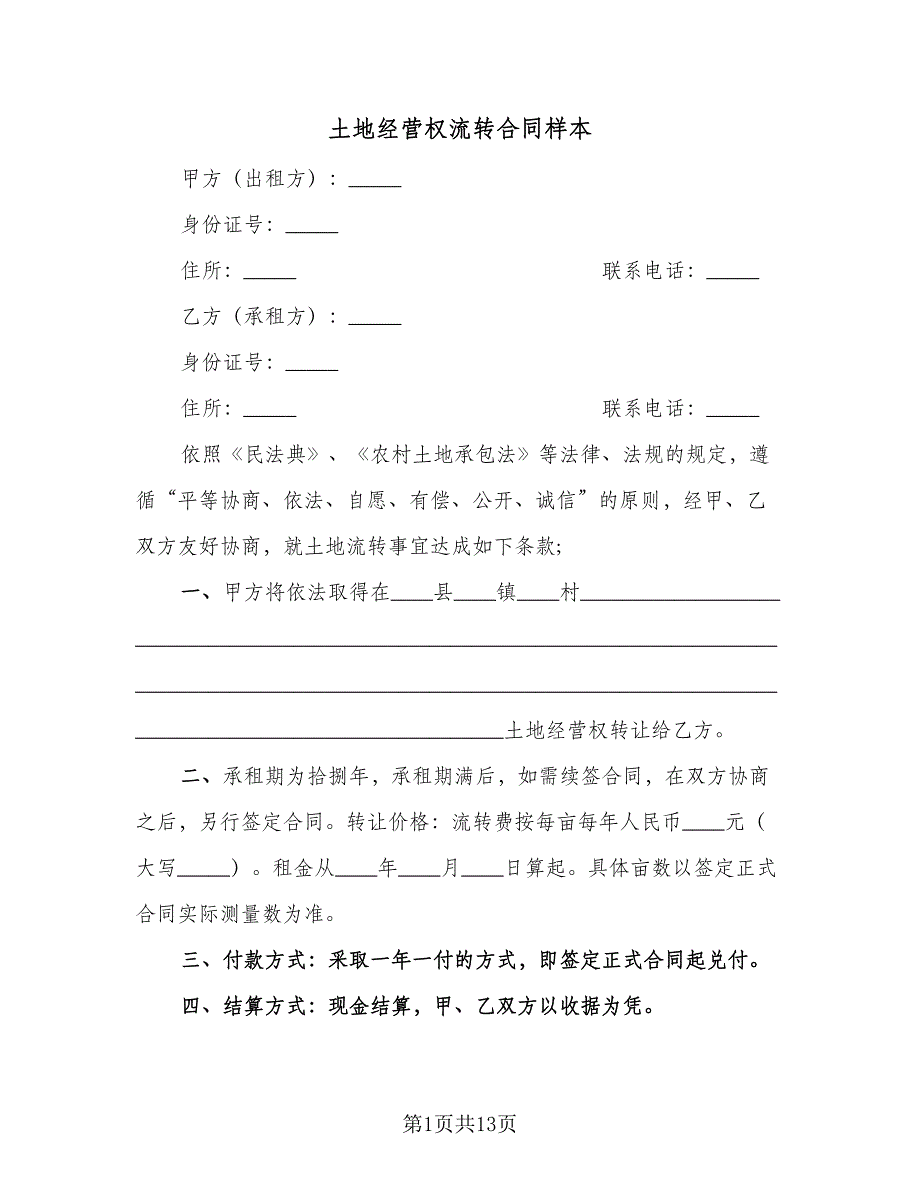 土地经营权流转合同样本
甲方（出租方）：_____
身份证号：_____
住所：_____ 联系电话：_____
乙方（承租方）：_____
身份证号：_____
住所：_____ 联系电话：_____
依照《民法典》、《农村土地承包法》等法律、法规的规定，遵
循“平等协商、依法、自愿、有偿、公开、诚信”的原则，经甲、乙
双方友好协商，就土地流转事宜达成如下条款;
一、甲方将依法取得在____县____镇____村___________________
_____________________________________________________________
_____________________________________________________________
___________________________________土地经营权转让给乙方。
二、承租期为拾捌年，承租期满后，如需续签合同，在双方协商
之后，另行签定合同。转让价格：流转费按每亩每年人民币____元（
大写_____）。租金从____年____月____日算起。具体亩数以签定正式
合同实际测量数为准。
三、付款方式：采取一年一付的方式，即签定正式合同起兑付。
四、结算方式：现金结算，甲、乙双方以收据为凭。
第1页共13页